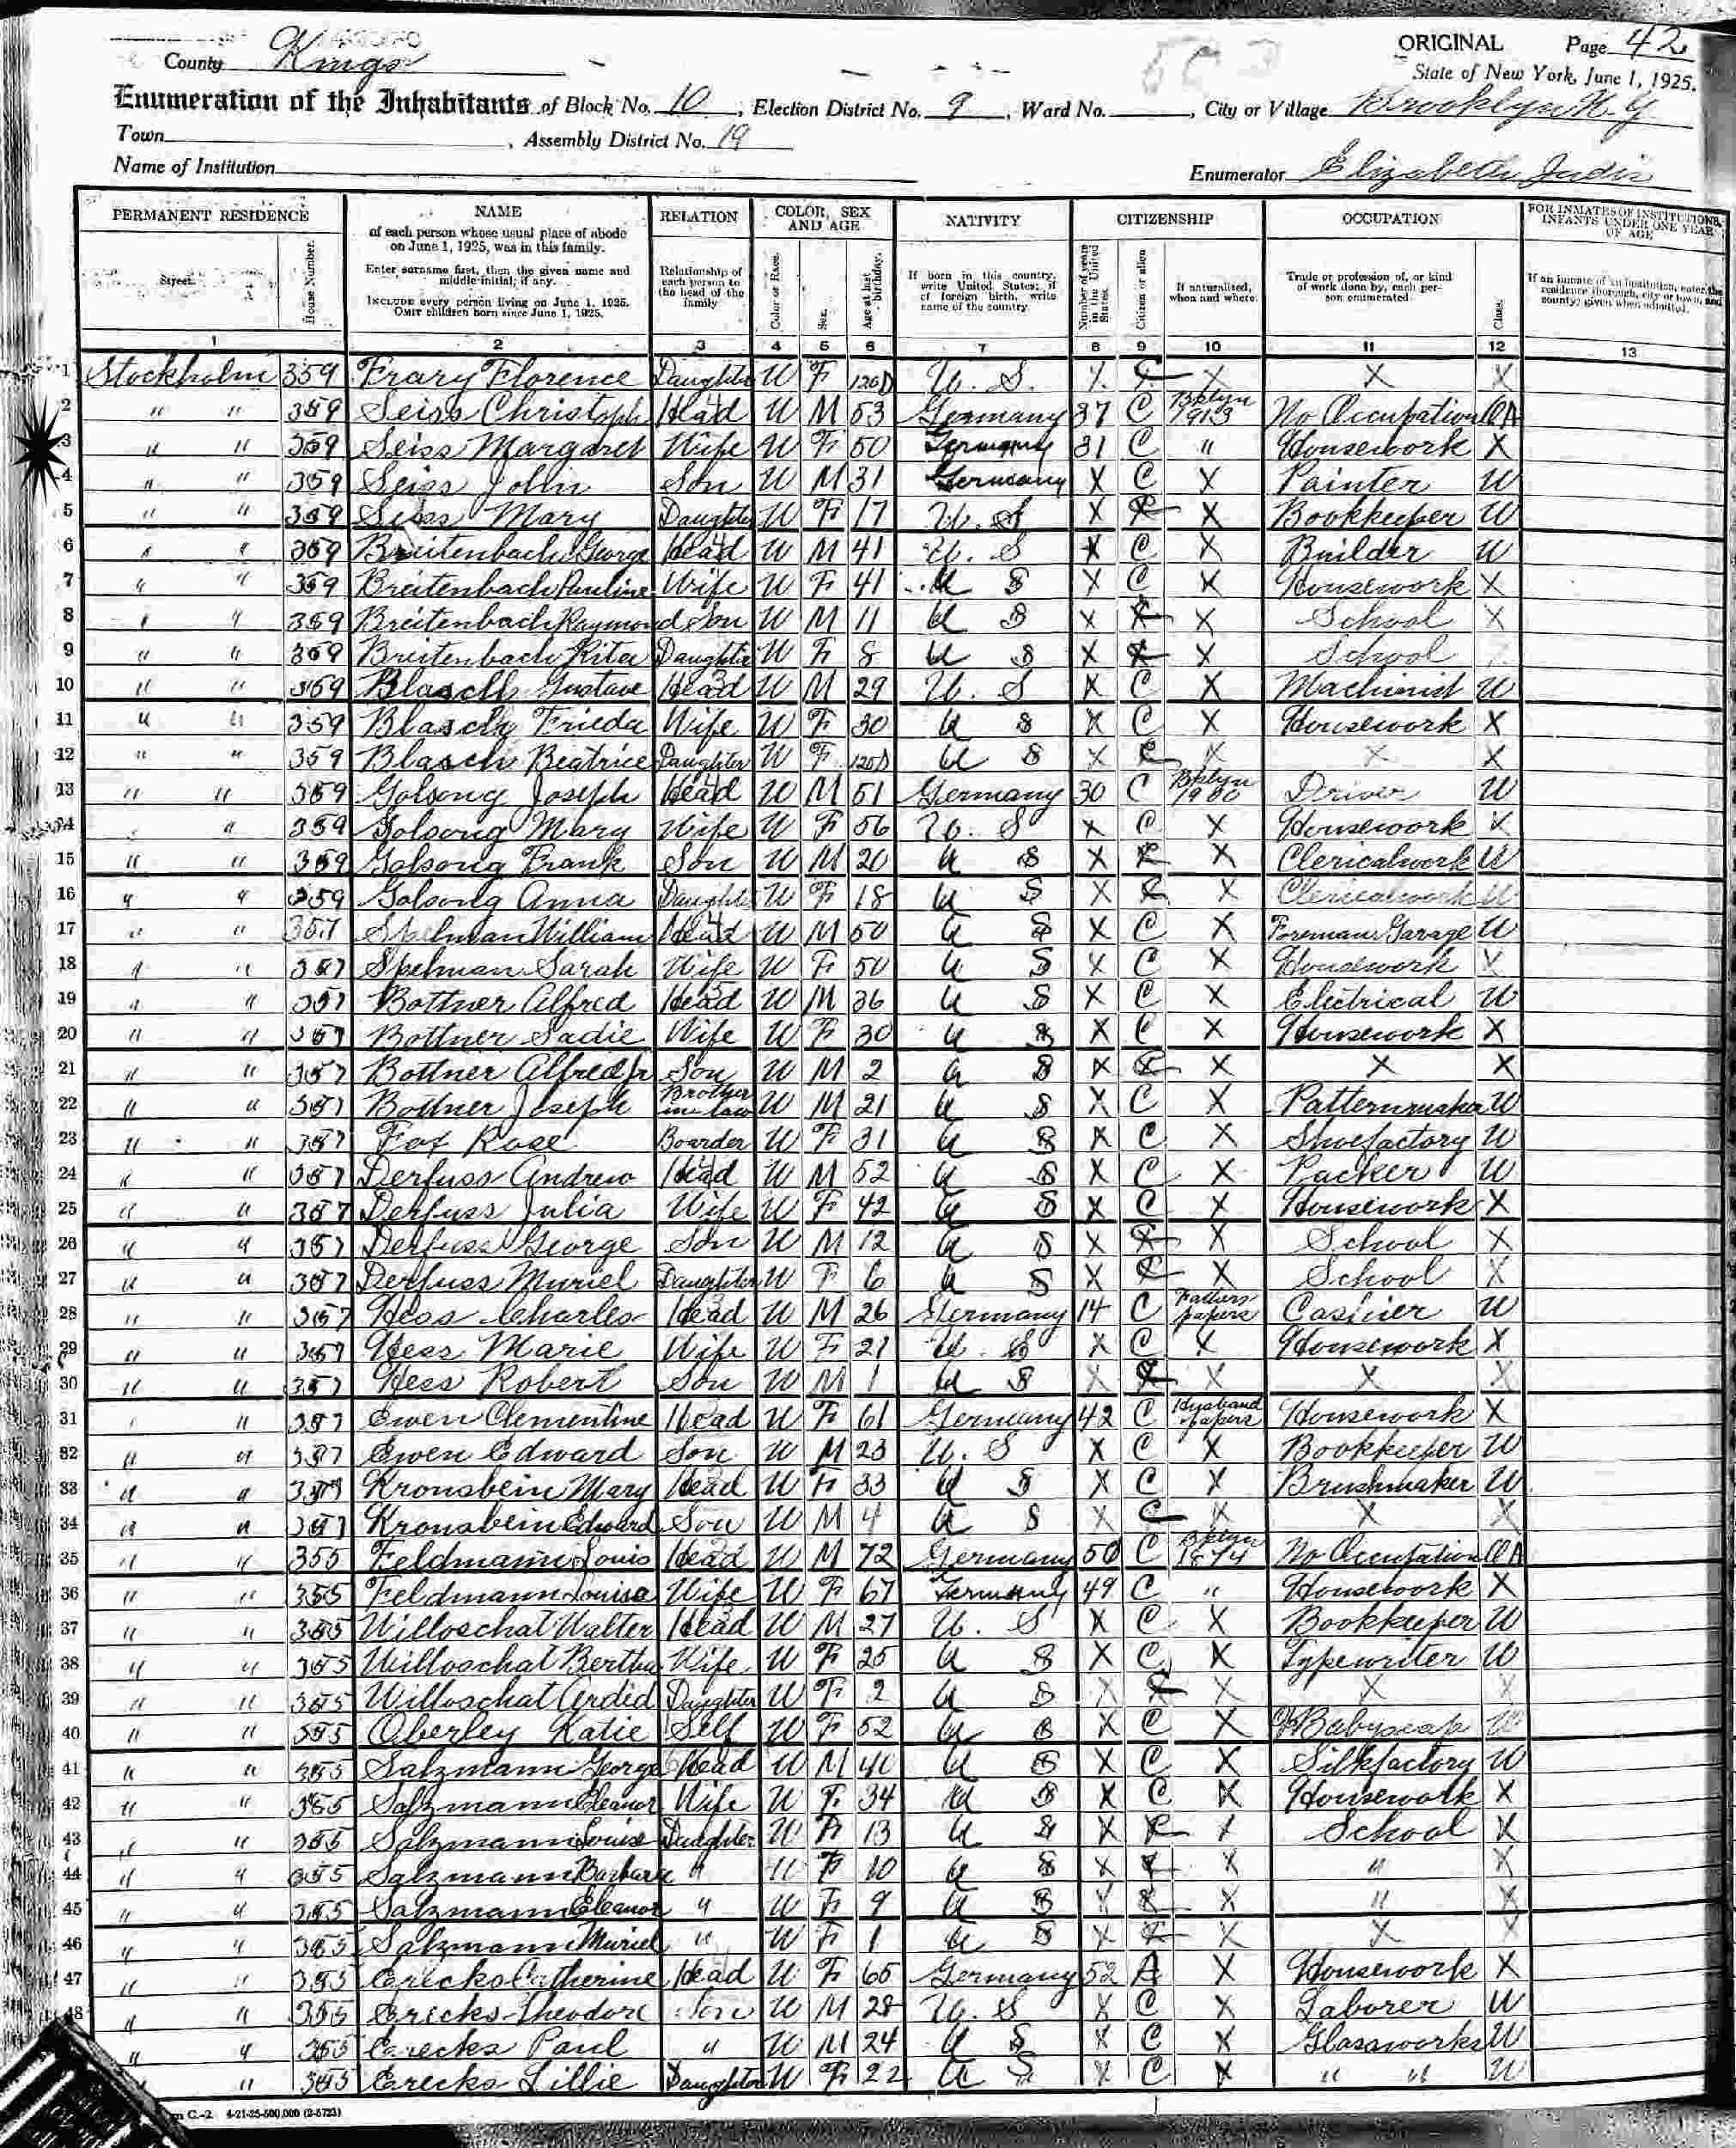 County Kings
ORIGINAL Page 42
State of New York, June 1, 1925.
Enumeration of the Inhabitants of Block No. 10, Election District No. 9, Ward No. , City or Village Brooklyn N.Y
Town , Assembly District No. 19
Name of Institution
Enumerator Elizabeth
PERMANENT RESIDENCE
Street.
House Number.
NAME
of each person whose usual place of abode on June 1, 1925, was in this family.
Enter surname first, then the given name and middle initial, if any.
INCLUDE every person living on June 1, 1925.
OMIT children born since June 1, 1925.
RELATION
Relationship of each person to the head of the family.
COLOR, SEX AND AGE
Color or Race.
Sex.
Age at last birthday.
NATIVITY
If born in this country, write United States; if of foreign birth, write name of the country.
CITIZENSHIP
Number of years in the United States.
Citizen or alien
If naturalized, when and where.
OCCUPATION
Trade or profession of, or kind of work done by, each person enumerated.
Class.
FOR INMATES OF INSTITUTIONS, INFANTS UNDER ONE YEAR OF AGE
If an inmate of an institution, enter the residence thorough, city or town, and county; given when admitted.
1 2 3 4 5 6 7 8 9 10 11 12 13
1 Stockholm 359 Frary Florence Daughter W F U. S. X C X X X
2 " " 359 Seiss Christoph Head W M 53 Germany 37 C Bklyn 1913 No Occupation OA
3 " " 359 Seiss Margaret Wife W F 50 Germany 31 C " Housework X
4 " " 359 Seiss John Son W M 31 Germany X C X Painter W
5 " " 359 Seiss Mary Daughter W F 17 U. S X C X Bookkeeper W
6 " " 359 Breitenbach George Head W M 41 U. S X C X Builder W
7 " " 359 Breitenbach Pauline Wife W F 41 U S X C X Housework X
8 " " 359 Breitenbach Raymond Son W M 11 U S X C X School X
9 " " 359 Breitenbach Rita Daughter W F 8 U S X C X School
10 " " 359 Blasch Gustave Head W M 29 U. S X C X Machinist W
11 " " 359 Blasch Frieda Wife W F 30 U S X C X Housework X
12 " " 359 Blasch Beatrice Daughter W F U S X C X X X
13 " " 359 Golsong Joseph Head W M 51 Germany 30 C Bklyn 1900 Driver W
14 " " 359 Golsong Mary Wife W F 56 U. S X C X Housework X
15 " " 359 Golsong Frank Son W M 20 U S X C X Clericalwork W
16 " " 359 Golsong Anna Daughter W F 18 U S X C X Clericalwork W
17 " " 357 Spelman William Head W M 50 U S X C X Foreman Garage W
18 " " 357 Spelman Sarah Wife W F 50 U S X C X Housework X
19 " " 357 Bottner Alfred Head W M 36 U S X C X Electrical W
20 " " 357 Bottner Sadie Wife W F 30 U S X C X Housework X
21 " " 357 Bottner Alfred Jr Son W M 2 U S X C X X X
22 " " 357 Bottner Joseph Brother in law W M 21 U S X C X Patternmaker W
23 " " 357 Fox Rose Boarder W F 31 U S X C X Shoefactory W
24 " " 357 Derfuss Andrew Head W M 52 U S X C X Packer W
25 " " 357 Derfuss Julia Wife W F 42 U S X C X Housework X
26 " " 357 Derfuss George Son W M 12 U S X C X School X
27 " " 357 Derfuss Muriel Daughter W F 6 U S X C X School X
28 " " 357 Hess Charles Head W M 26 Germany 14 C Fathers papers Cashier W
29 " " 357 Hess Marie Wife W F 21 U. S X C X Housework X
30 " " 357 Hess Robert Son W M 1 U S X C X X X
31 " " 357 Ewen Clementine Head W F 61 Germany 42 C Husband papers Housework X
32 " " 357 Ewen Edward Son W M 23 U. S X C X Bookkeeper W
33 " " 357 Kronsbein Mary Head W F 33 U S X C X Brushmaker W
34 " " 357 Kronsbein Edward Son W M 4 U S X C X X X
35 " " 355 Feldmann Louis Head W M 72 Germany 50 C Bklyn 1874 No Occupation OA
36 " " 355 Feldmann Louisa Wife W F 67 Germany 49 C " Housework X
37 " " 355 Willoschat Walter Head W M 27 U. S X C X Bookkeeper W
38 " " 355 Willoschat Bertha Wife W F 25 U S X C X Typewriter W
39 " " 355 Willoschat Ardid Daughter W F 2 U S X C X X X
40 " " 355 Oberley Katie Self W F 52 U S X C X W
41 " " 355 Salzmann George Head W M 40 U S X C X Silkfactory W
42 " " 355 Salzmann Eleanor Wife W F 34 U S X C X Housework X
43 " " 355 Salzmann Louise Daughter W F 13 U S X C X School X
44 " " 355 Salzmann Barbara " W F 10 U S X C X " X
45 " " 355 Salzmann Eleanor " W F 9 U S X C X " X
46 " " 355 Salzmann Muriel " W F 1 U S X C X X X
47 " " 355 Ericks Catherine Head W F 65 Germany 52 A X Housework X
48 " " 355 Ericks Theodore Son W M 28 U. S X C X Laborer W
" " 355 Ericks Paul " W M 24 U S X C X Glassworks W
" " 355 Ericks Lillie Daughter W F 22 U S X C X " " W
C.-2 4-21-25-500,000 (2-6723)